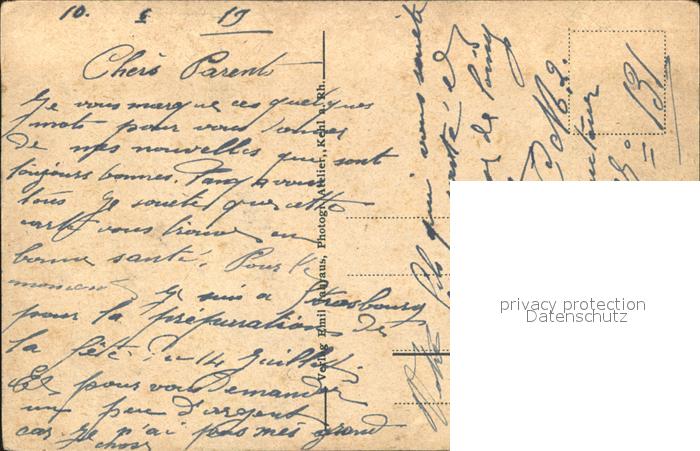 10. 5 19
Chers Parents
Je vous marque ces quelques
mots pour vous donner
de mes nouvelles qui sont
toujours bonnes. Tant a vous
tous je souete que cette
carte vous trouve en
bonne santé. Pour le
moment je suis a Strasbourg
pour la préparation de
la fête du 14 Juillet.
Et pour vous demander
un peu d'argent
car je n'ai pas mes grand
chose
Votre fils qui vous souete
santé
P.M.2.
131
Verlag Emil Photogr. Atelier, Kehl a. Rh.
privacy protection
Datenschutz